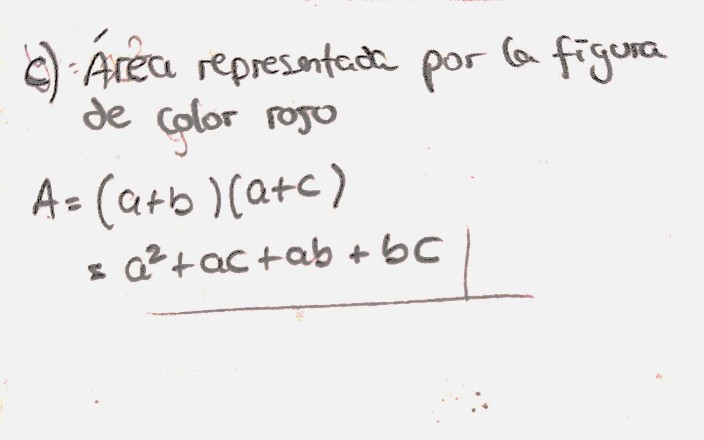 c) Área representada por la figura
de color rojo
A = (a+b)(a+c)
= a²+ac+ab+bc